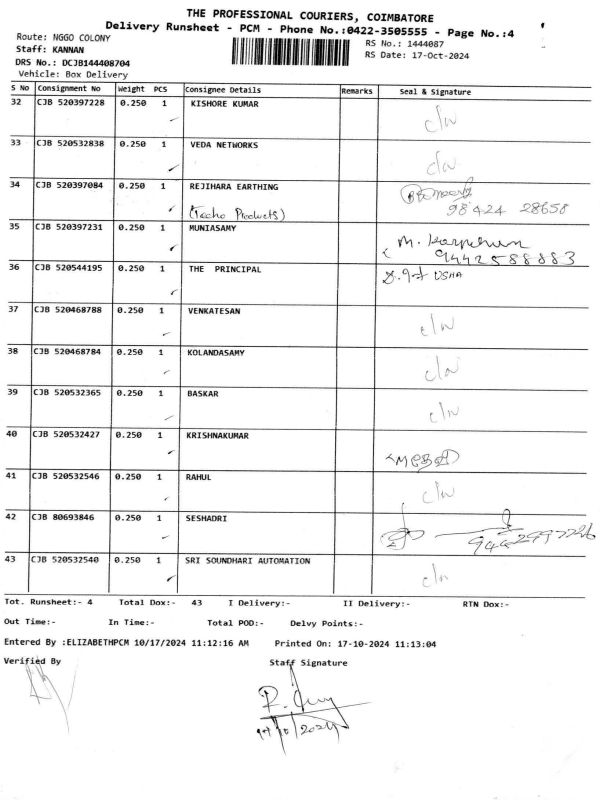 THE PROFESSIONAL COURIERS, COIMBATORE
Delivery Runsheet - PCM - Phone No.:0422-3505555 - Page No.:4
Route: NGGO COLONY
RS No.: 1444087
Staff: KANNAN
RS Date: 17-Oct-2024
DRS No.: DCJB144408704
Vehicle: Box Delivery
S No Consignment No Weight PCS Consignee Details Remarks Seal & Signature
32 CJB 520397228 0.250 1 KISHORE KUMAR
c/w
33 CJB 520532838 0.250 1 VEDA NETWORKS
c/w
34 CJB 520397084 0.250 1 REJIHARA EARTHING
(Techo Products) 98424 28658
35 CJB 520397231 0.250 1 MUNIASAMY
9442588883
36 CJB 520544195 0.250 1 THE PRINCIPAL
USHA
37 CJB 520468788 0.250 1 VENKATESAN
c/w
38 CJB 520468784 0.250 1 KOLANDASAMY
c/w
39 CJB 520532365 0.250 1 BASKAR
c/w
40 CJB 520532427 0.250 1 KRISHNAKUMAR
41 CJB 520532546 0.250 1 RAHUL
c/w
42 CJB 80693846 0.250 1 SESHADRI
43 CJB 520532540 0.250 1 SRI SOUNDHARI AUTOMATION
c/w
Tot. Runsheet:- 4 Total Dox:- 43 I Delivery:- II Delivery:- RTN Dox:-
Out Time:- In Time:- Total POD:- Delvy Points:-
Entered By :ELIZABETHPCM 10/17/2024 11:12:16 AM Printed On: 17-10-2024 11:13:04
Verified By Staff Signature